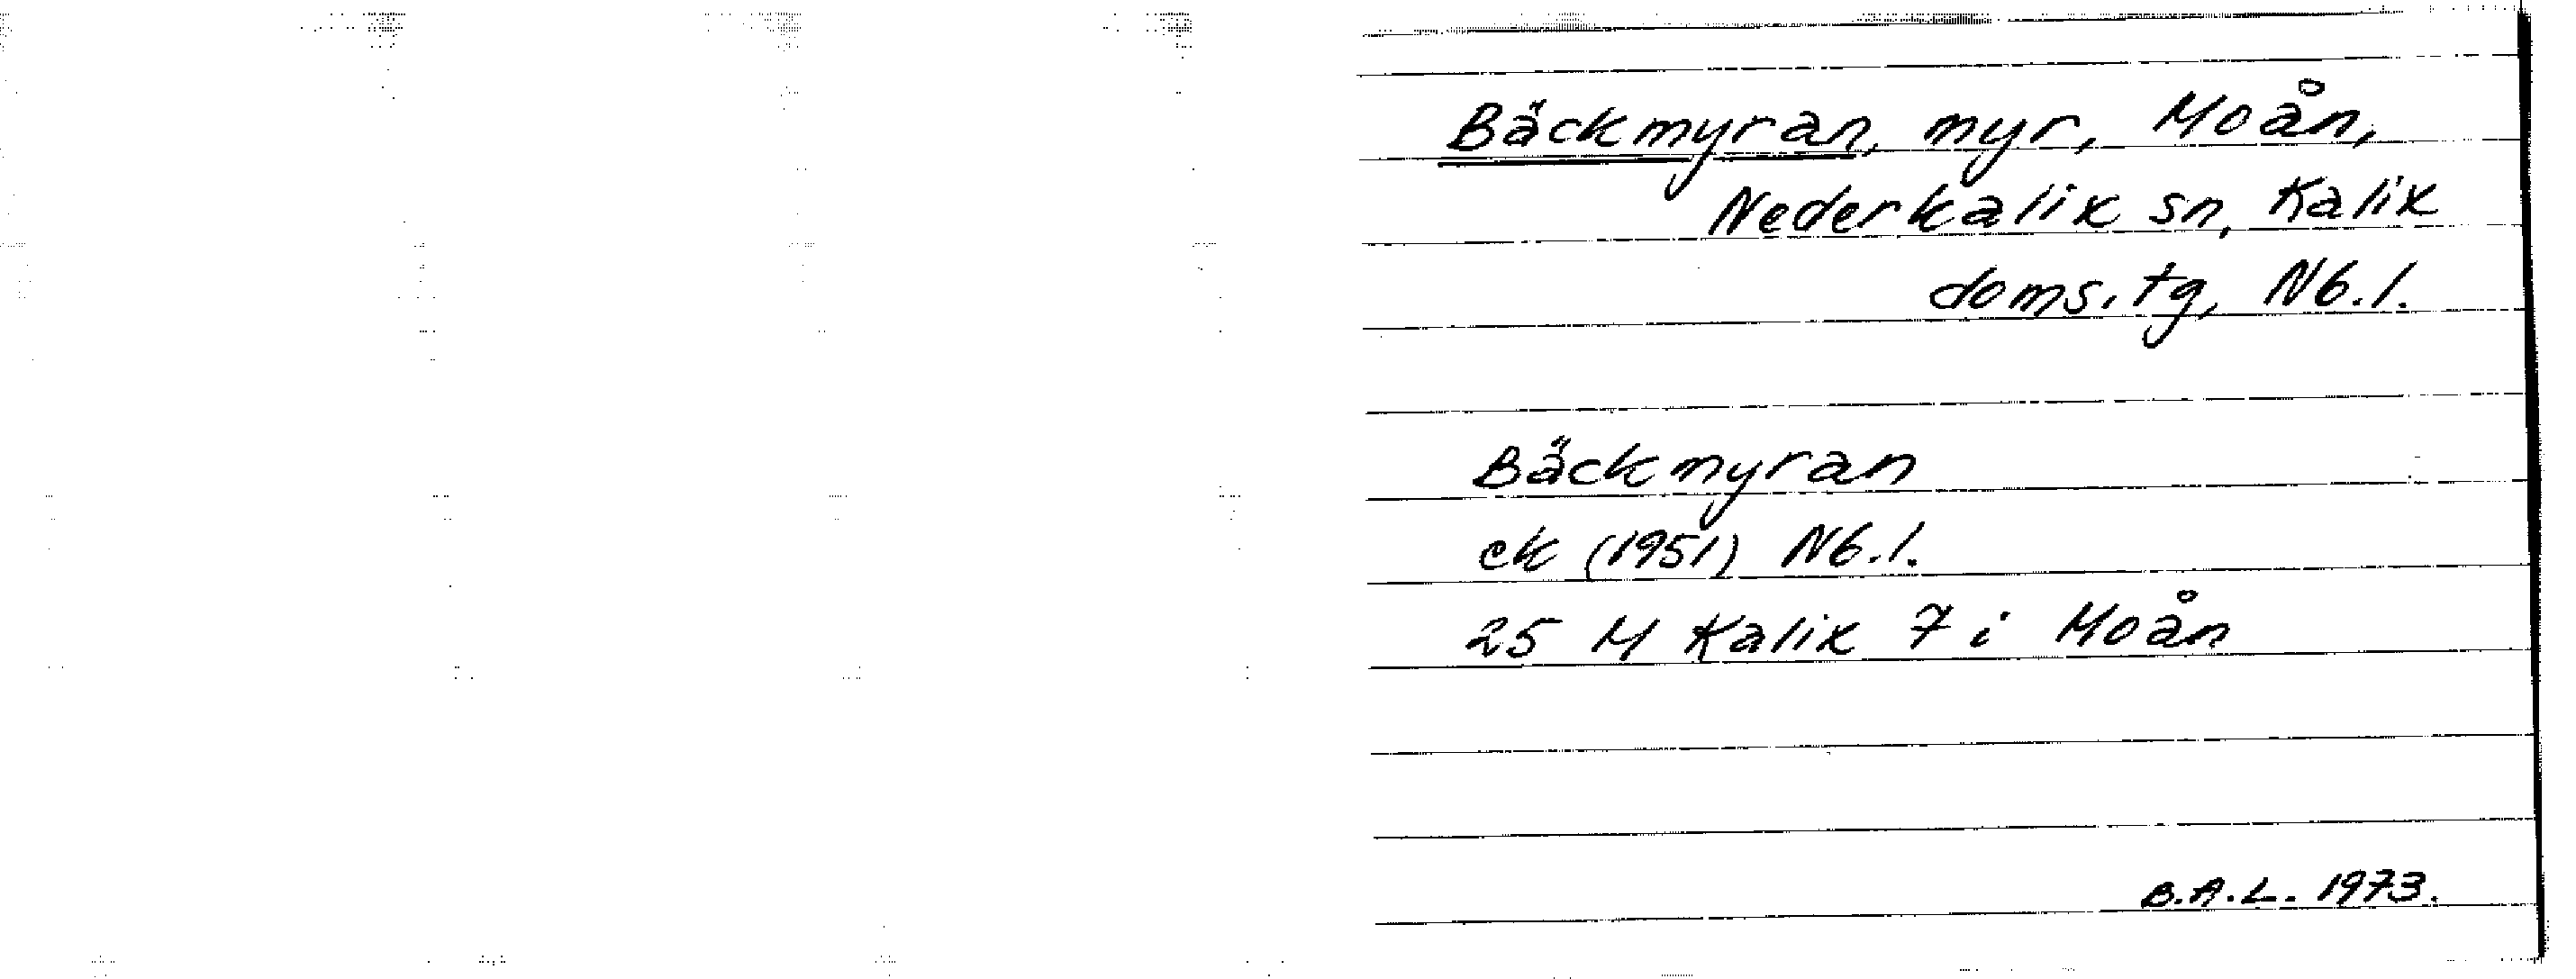 Bäckmyran, myr, Moån,
Nederkalix sn, Kalix
doms. tg, Nb. l.
Bäckmyran
ek (1951) Nb. l.
25 M Kalix 7 i Moån
B.A.L. 1973.